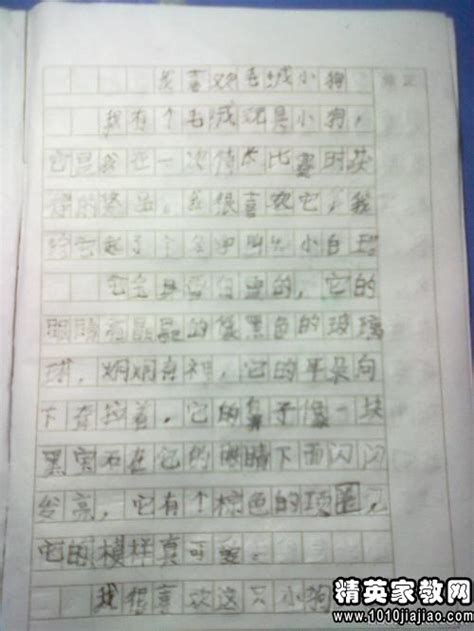 我喜欢毛绒小狗
我有个毛绒玩具小狗，
它是我在一次特长比赛时获
得的奖品，我很喜欢它，我
给它起了个名字叫
它全身雪白的，它的
眼睛亮晶晶的像黑色的玻璃
球，炯炯有神，它的耳朵向
下耷拉着，它的鼻子像一块
黑宝石在它的眼睛下面闪闪
发亮，它有个棕色的项圈，
它的模样真可爱。
我很喜欢这只小狗
精英家教网
www.1010jiajiao.com